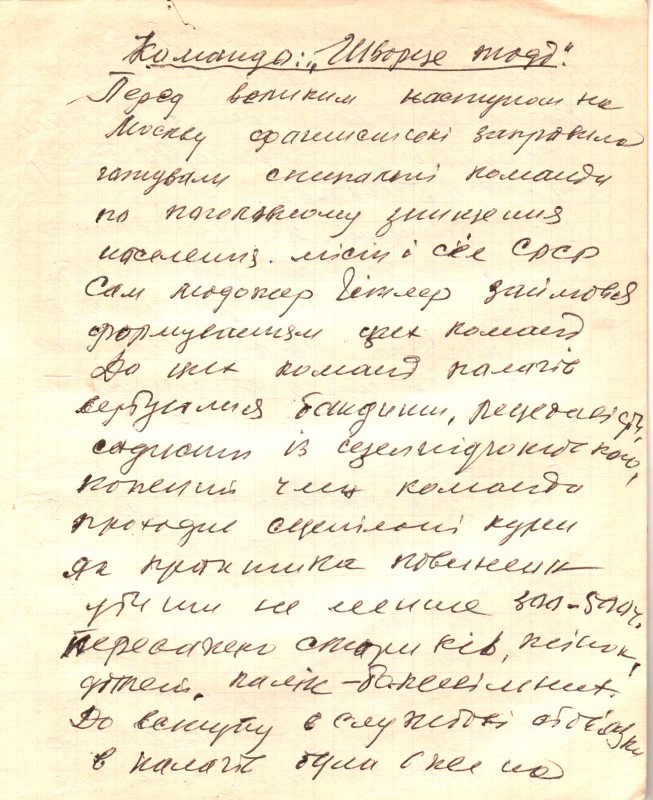 Команда: „Шворце тоді".
Перед великим наступом на
Москву фашистські заправила
готували спеціальні команди
по поголовному знищення
населення. міст і сіл СРСР
Сам людожер Гітлер займався
формуванням цих команд
До цих команд палачів
вербувалися бандити,
садисти із
кожений член команди
проходив спеціальні курси
як практика повинен
убити не менше 300-500ч.
переважно стариків, жінок,
дітей, калік - божевільних.
До вступу в службові обовязки
в палачів була вже на